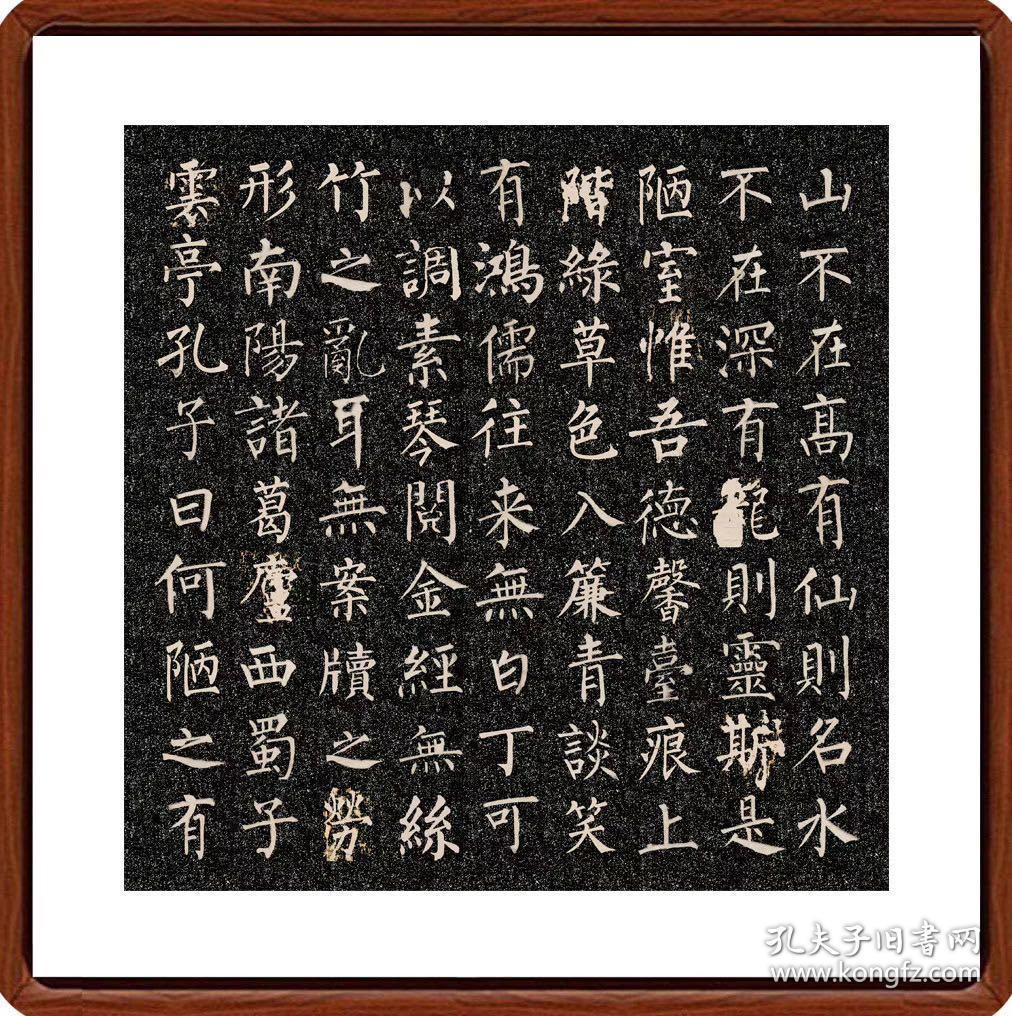 山不在髙有仙則名水
不在深有龍則靈斯是
陋室惟吾德馨臺痕上
階綠草色入簾青談笑
有鴻儒往来無白丁可
以調素琴閱金經無絲
竹之亂耳無案牘之勞
形南陽諸葛廬西蜀子
雲亭孔子曰何陋之有
孔夫子旧書网
www.kongfz.com